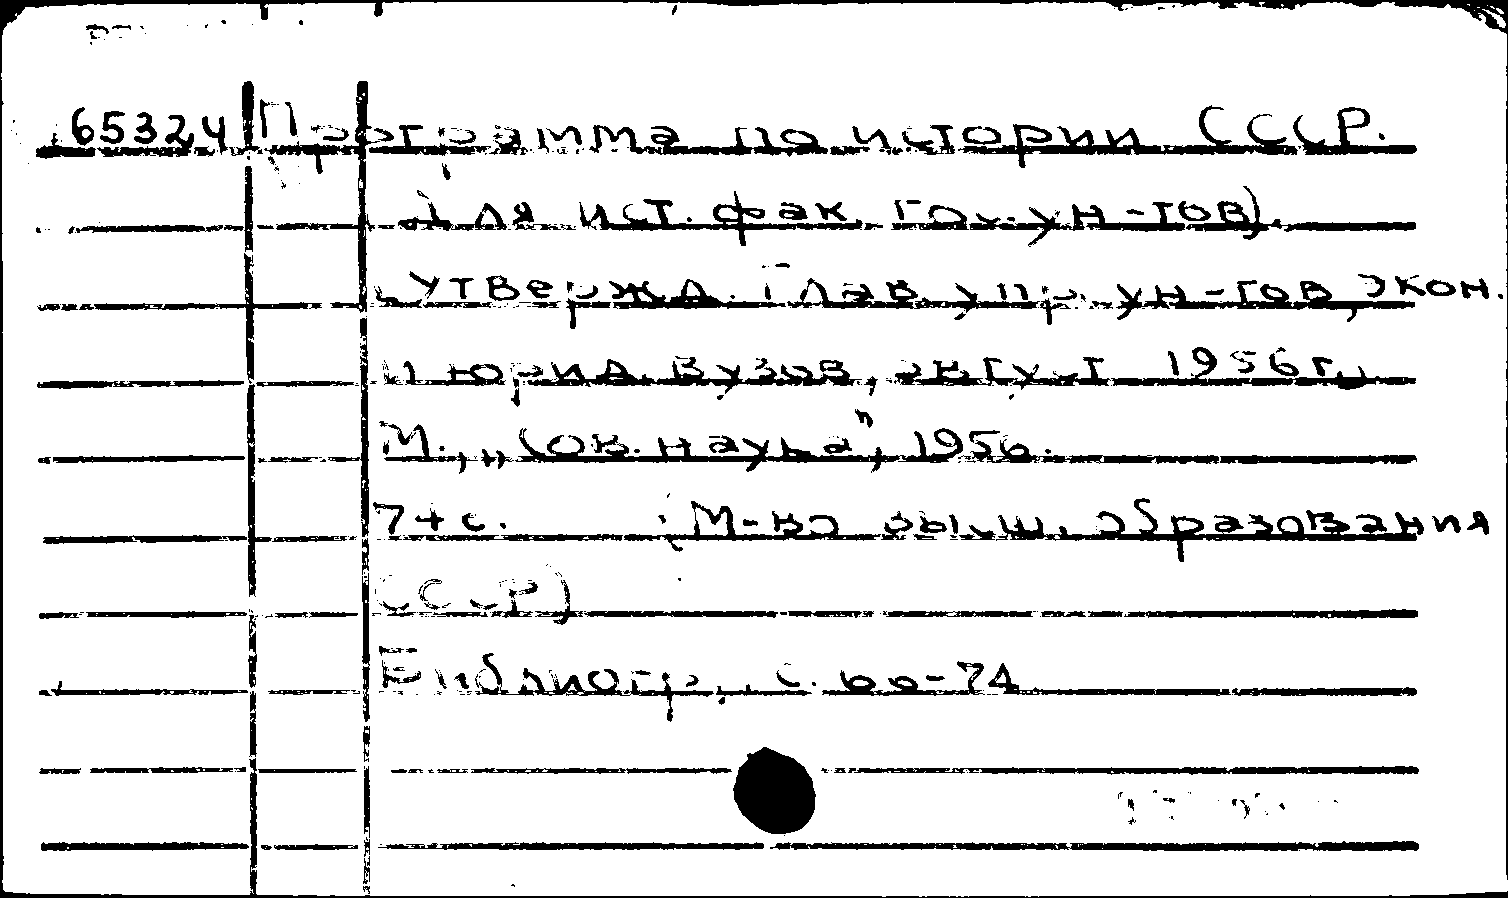 65324 Программа по истории СССР.
(Для ист. фак. гос. ун-тов).
Утвержд. Глав. упр. ун-тов, экон.
и юрид. вузов, август 1956 г.
М., „Сов. наука", 1956.
74 с. (М-во высш. образования
СССР)
Библиогр., с. 66-74